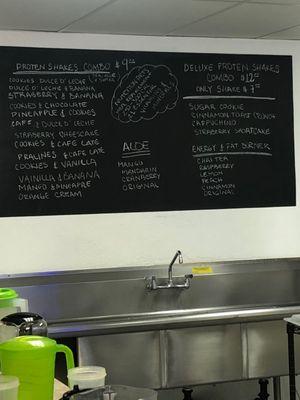 PROTEIN SHAKES COMBO $9.00
COOKIES DULCE D' LECHE
DULCE D' LECHE & BANANA
STRABERRY & BANANA
COOKIES & CHOCOLATE
PINEAPPLE & COOKIES
CAFE & DULCE D' LECHE
STRABERRY CHEESCAKE
COOKIES & CAFE LATE
PRALINES & CAFE LATE
COOKIES & VANILLA
VAINILLA & BANANA
MANGO & PINEAPPLE
ORANGE CREAM
ALOE
MANGO
MANDARIN
CRANBERRY
ORIGINAL
DELUXE PROTEN SHAKES
COMBO $12.00
ONLY SHAKE $7.00
SUGAR COOKIE
CINNAMON TOAST
CAPPUCHINO
STRABERRY SHORTCAKE
ENERGY & FAT BURNER
CHAI TEA
RASPBERRY
LEMON
PEACH
CINNAMON
ORIGINAL